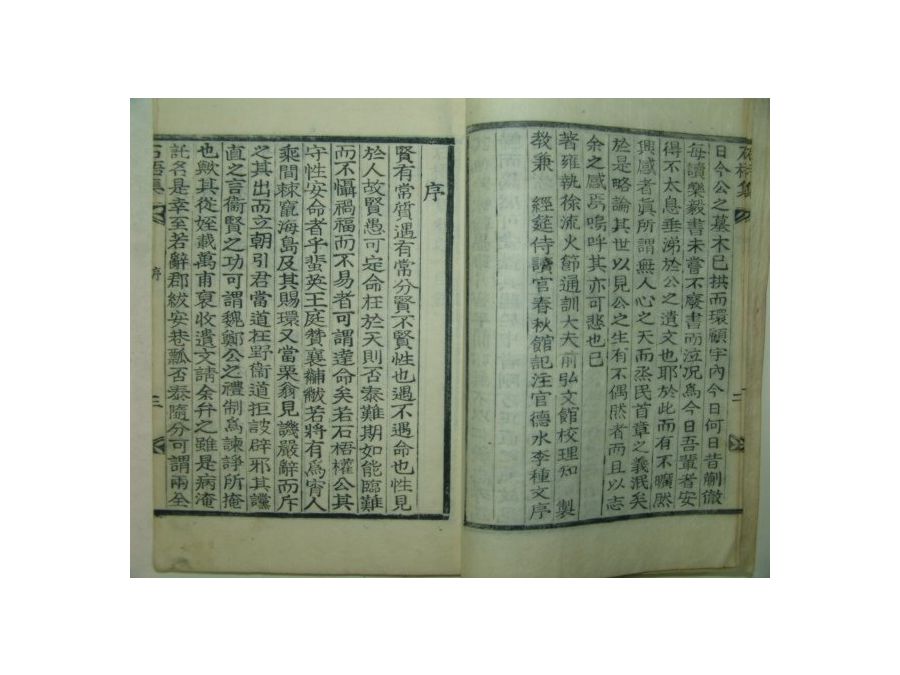 日今公之墓木已拱而環顧宇內今日何日昔蒯徹
每讀樂毅書未嘗不廢書而泣况爲今日吾輩者安
得不太息垂涕於公之遺文也耶於此而有不矚然
興感者眞所謂無人心之天而烝民首章之義泯矣
於是略論其世以見公之生有不偶然者而且以志
余之感焉嗚呼其亦可悲也已
著雍執徐流火節通訓大夫前弘文館校理知 製
敎兼 經筵侍讀官春秋館記注官德水李種文序
二
序
賢有常質遇有常分賢不賢性也遇不遇命也性見
於人故賢愚可定命在於天則否泰難期如能臨難
而不懾禍福而不易者可謂達命矣若石梧權公其
守性安命者乎蜚英王庭贊襄黼黻若將有爲宵人
乘間棘竄海島及其賜環又當栗翁見譏嚴辭而斥
之其出而立朝引君當道在野衛道拒詖辟邪其讜
直之言衛賢之功可謂魏鄭公之禮制爲諫諍所掩
也歟其從姪載萬甫裒收遺文請余弁之雖是病淹
託名是幸至若辭郡紱安巷瓢否泰隨分可謂兩全
石梧集
序
三